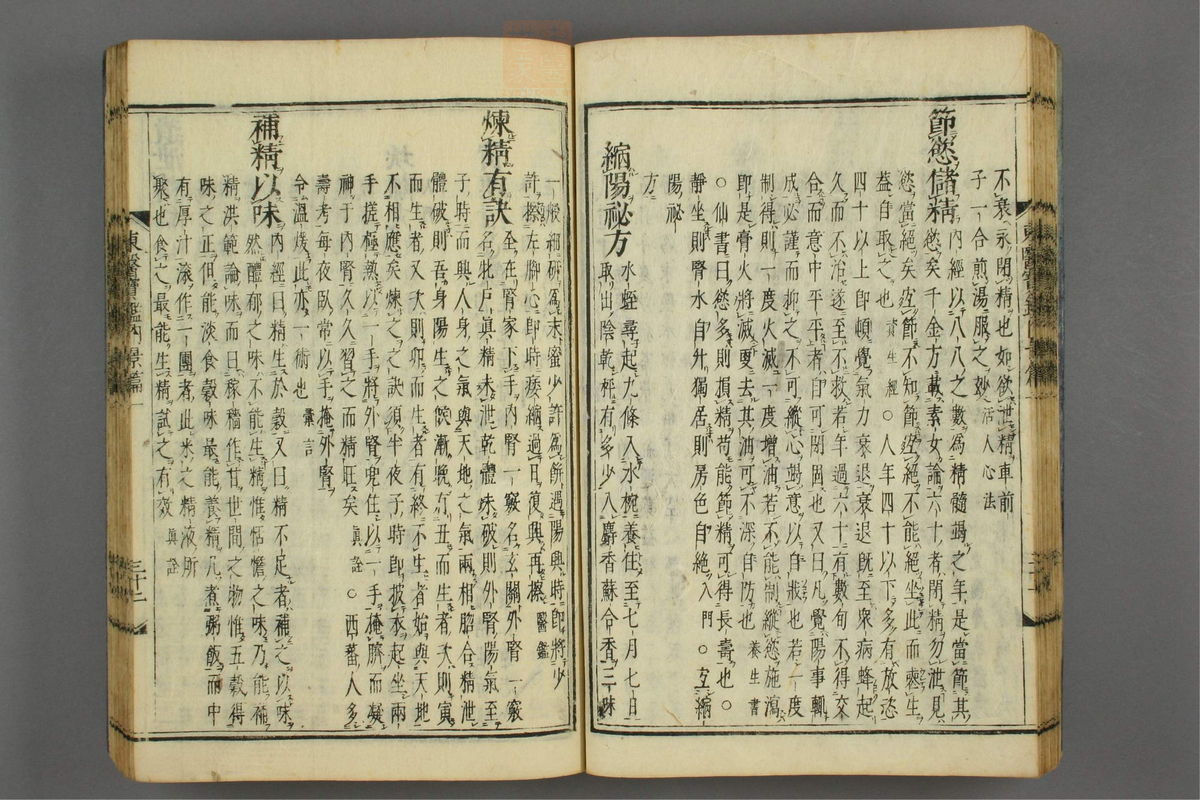 不衰永閉精也如欲泄精車前
子一合煎湯服之妙活人心法
節慾儲精
內經以八八之數爲精髓竭之年是當節其
慾矣千金方載素女論六十者閉精勿泄見
慾當絕矣宜節不知節宜絕不能絕坐此而喪生
蓋自取之也資生經○人年四十以下多有放恣
四十以上卽頓覺氣力衰退衰退旣至衆病蜂起
久而不治遂至不救若年過六十有數旬不得交
合而意中平平者卽可閉固也又曰凡覺陽事輒
盛必謹而抑之不可縱心竭意以自戕也若一度
制得則一度火滅一度增油若不能制縱慾施瀉
卽是膏火將滅更去其油可不深自防也養生書
○仙書曰慾多則損精苟能節精可得長壽也○
靜坐則腎水自升獨居則房色自絕入門○宜縮
陽祕
方
縮陽祕方
水蛭尋起九條入水椀養住至七月七日
取出陰乾秤有多少入麝香蘇合香三味
一般細硏爲末蜜少許爲餠遇陽興時卽將少
許擦左脚心卽時痿縮過日復興再擦醫鑑
煉精有訣
全在腎家下手內腎一竅名玄關外腎一竅
名牝戶眞精未泄乾體未破則外腎陽氣至
子時而興人身之氣與天地之氣兩相脗合精泄
體破則吾身陽生之候漸晚有丑而生者次則寅
而生者又次則卯而生者有終不生者始與天地
不相應矣煉之之訣須半夜子時卽披衣起坐兩
手搓極熱以一手將外腎兜住以一手掩臍而凝
神于內腎久久習之而精旺矣眞詮○西蕃人多
壽考每夜臥常以手掩外腎
令溫煖此亦一術也彙言
補精以味
內經曰精生於穀又曰精不足者補之以味
然醴郁之味不能生精惟恬憺之味乃能補
精洪範論味而曰稼穡作甘世間之物惟五穀得
味之正但能淡食穀味最能養精凡煮粥飯而中
有厚汁滾作一團者此米之精液所
聚也食之最能生精試之有效眞詮
東醫寶鑑內景篇一
三十二